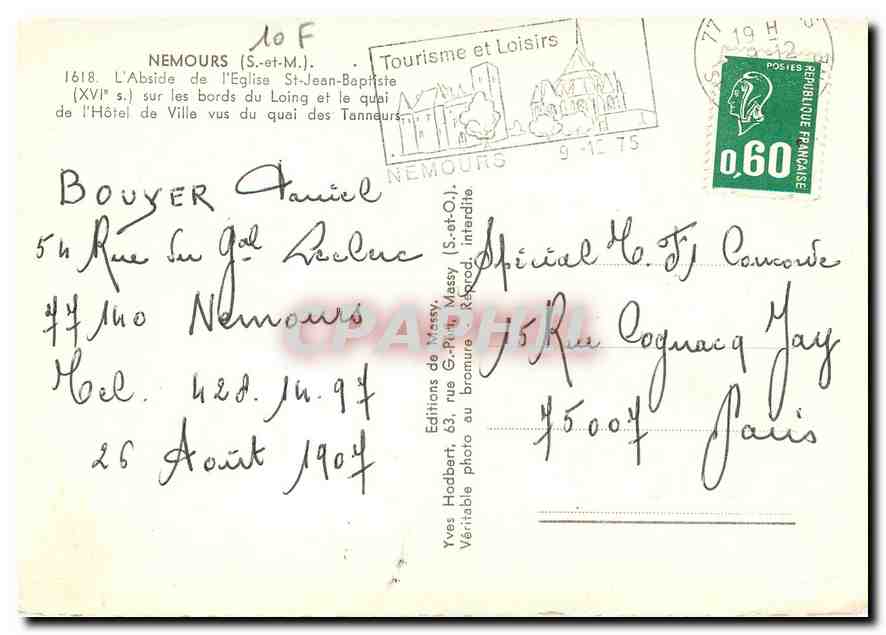 10 F
NEMOURS (S.-et-M.).
1618. L'Abside de l'Eglise St-Jean-Baptiste
(XVIe s.) sur les bords du Loing et le quai
de l'Hôtel de Ville vus du quai des Tanneurs.
Tourisme et Loisirs
NEMOURS
77
19 H
POSTES
REPUBLIQUE FRANÇAISE
0,60
BOUYER Daniel
54 Rue du Gal Leclerc
77 140 Nemours
Tel. 428.14.97
26 Août 1907
Editions de Massy.
Yves Hodbert, 63, rue G.-Péri, Massy (S.-et-O.).
Véritable photo au bromure Reprod. interdite
Spécial T. F1 Concorde
15 Rue Cognacq Jay
75007 Paris
CPAPHIL